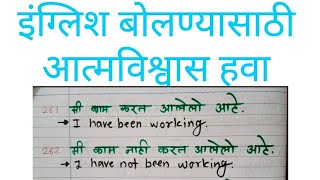 इंग्लिश बोलण्यासाठी
आत्मविश्वास हवा
261 मी काम करत आलेलो आहे.
→ I have been working.
262 मी काम नाही करत आलेलो आहे.
→ I have not been working.